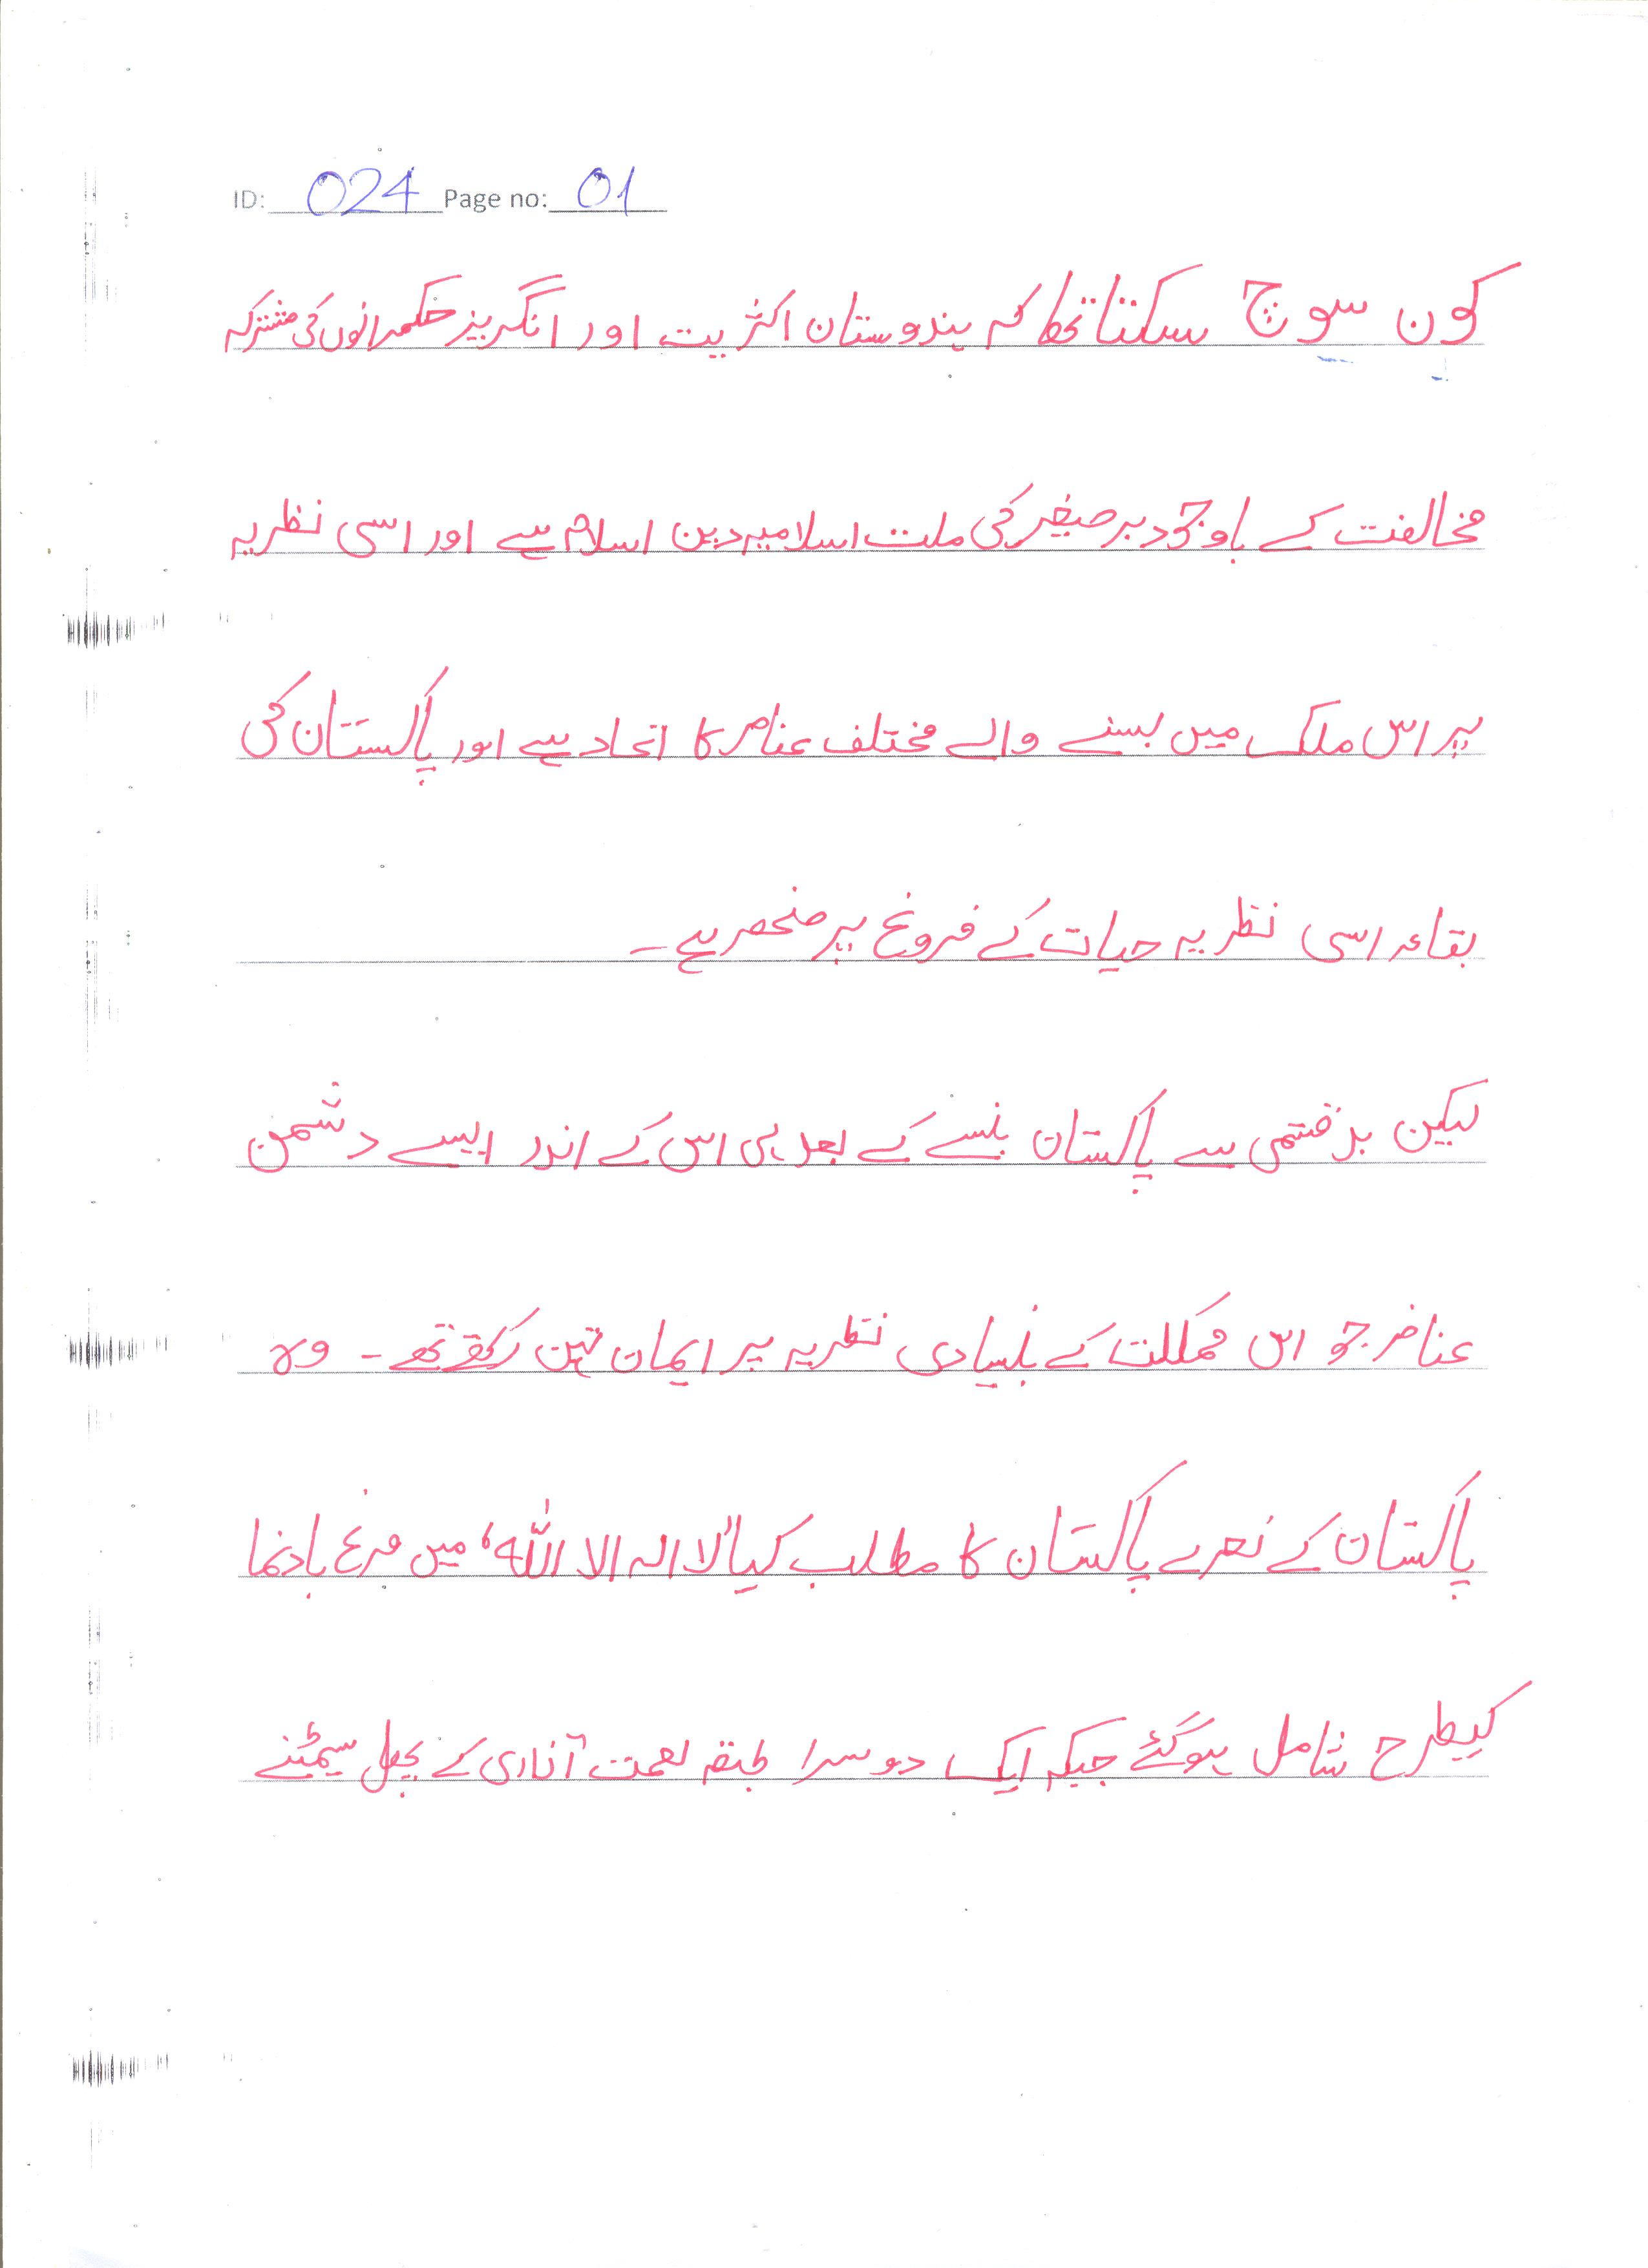 ID: 024 Page no: 01
کون سوچ سکتا تھا کہ ہندوستان اکثریت اور انگریز حکمرانوں کی مشترکہ
مخالفت کے باوجود برصغیر کی ملت اسلامیہ دین اسلام ہے اور اسی نظریہ
پر اس ملک میں بسنے والے مختلف عناصر کا اتحاد ہے اور پاکستان کی
بقاء اسی نظریہ حیات کے فروغ پر منحصر ہے۔
لیکن بدقسمتی سے پاکستان بننے کے بعد ہی اس کے اندر ایسے دشمن
عناصر جو اس مملکت کے بنیادی نظریہ پر ایمان نہیں رکھتے تھے۔ وہ
پاکستان کے نعرے پاکستان کا مطلب کیا 'لا الہ الا اللہ' میں مرغ بادنما
کیطرح شامل ہوگئے جبکہ ایک دوسرا طبقہ نعمت آزادی کے پھل سمیٹنے